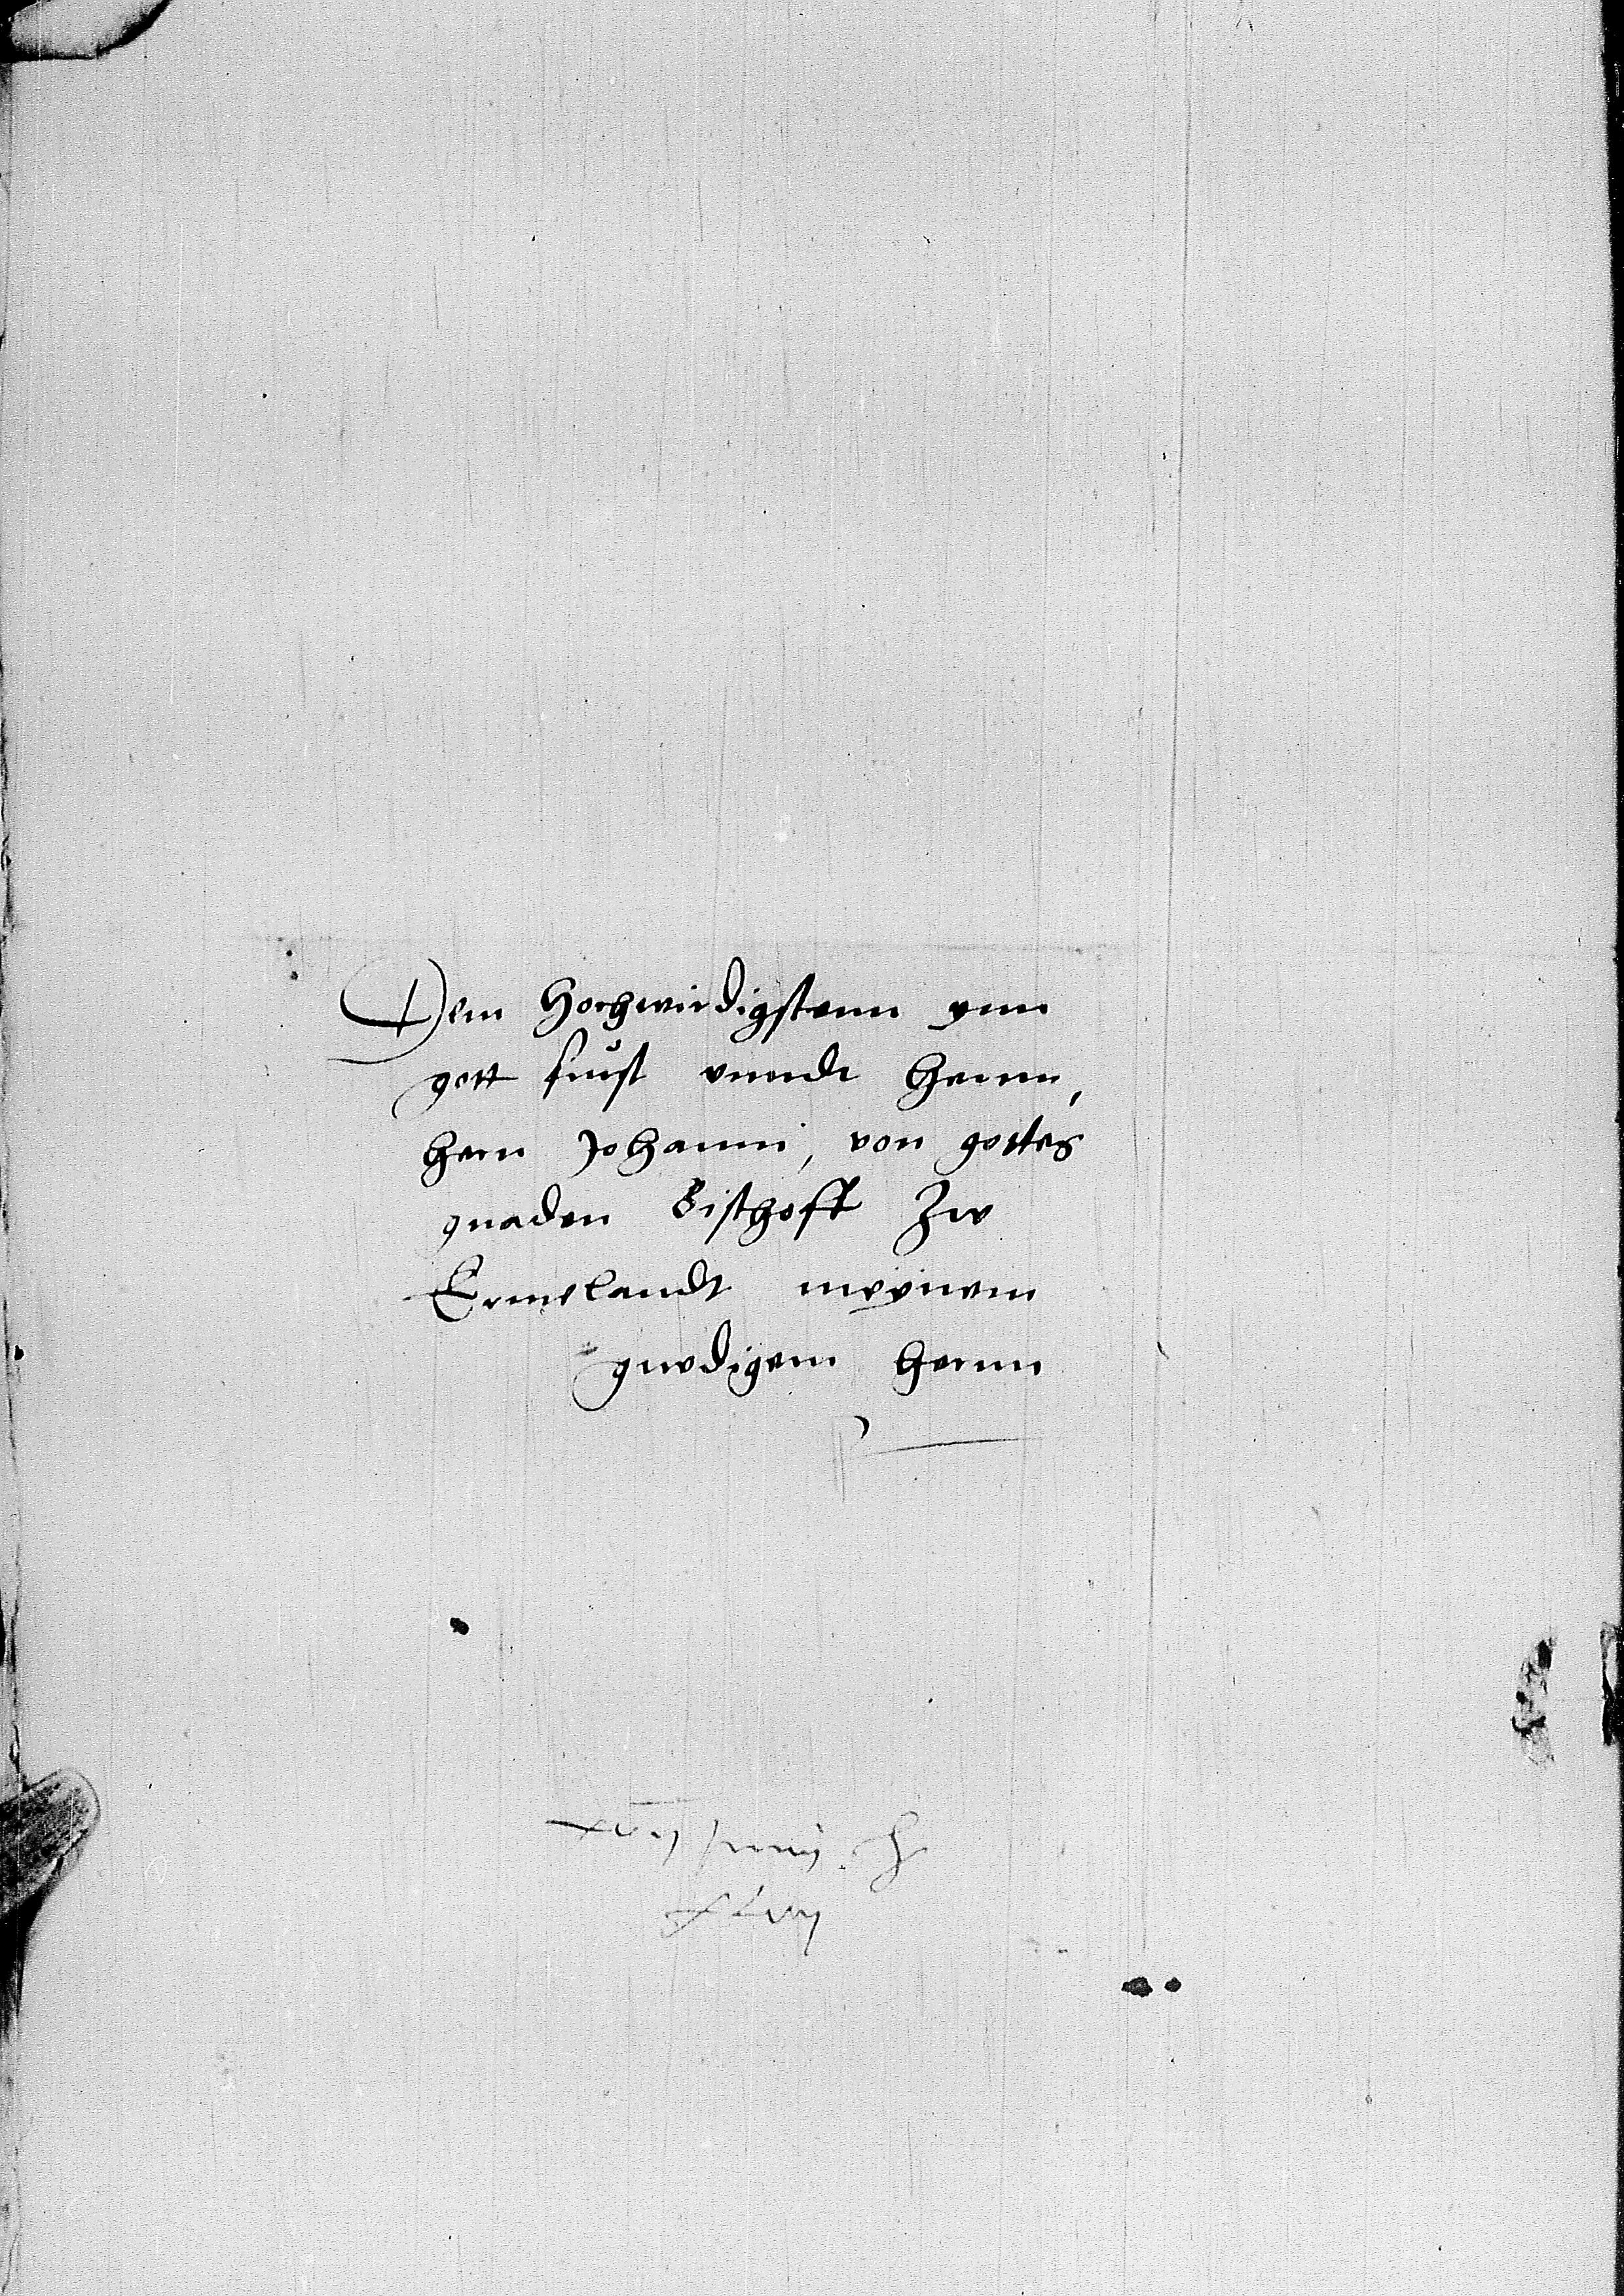 Dem Hochwirdigstenn ynn
gott furst vnnde hernn,
hern Johanni, von gottes
gnaden Bischoff zw
Ermelandt meynem
gnedigem hernn